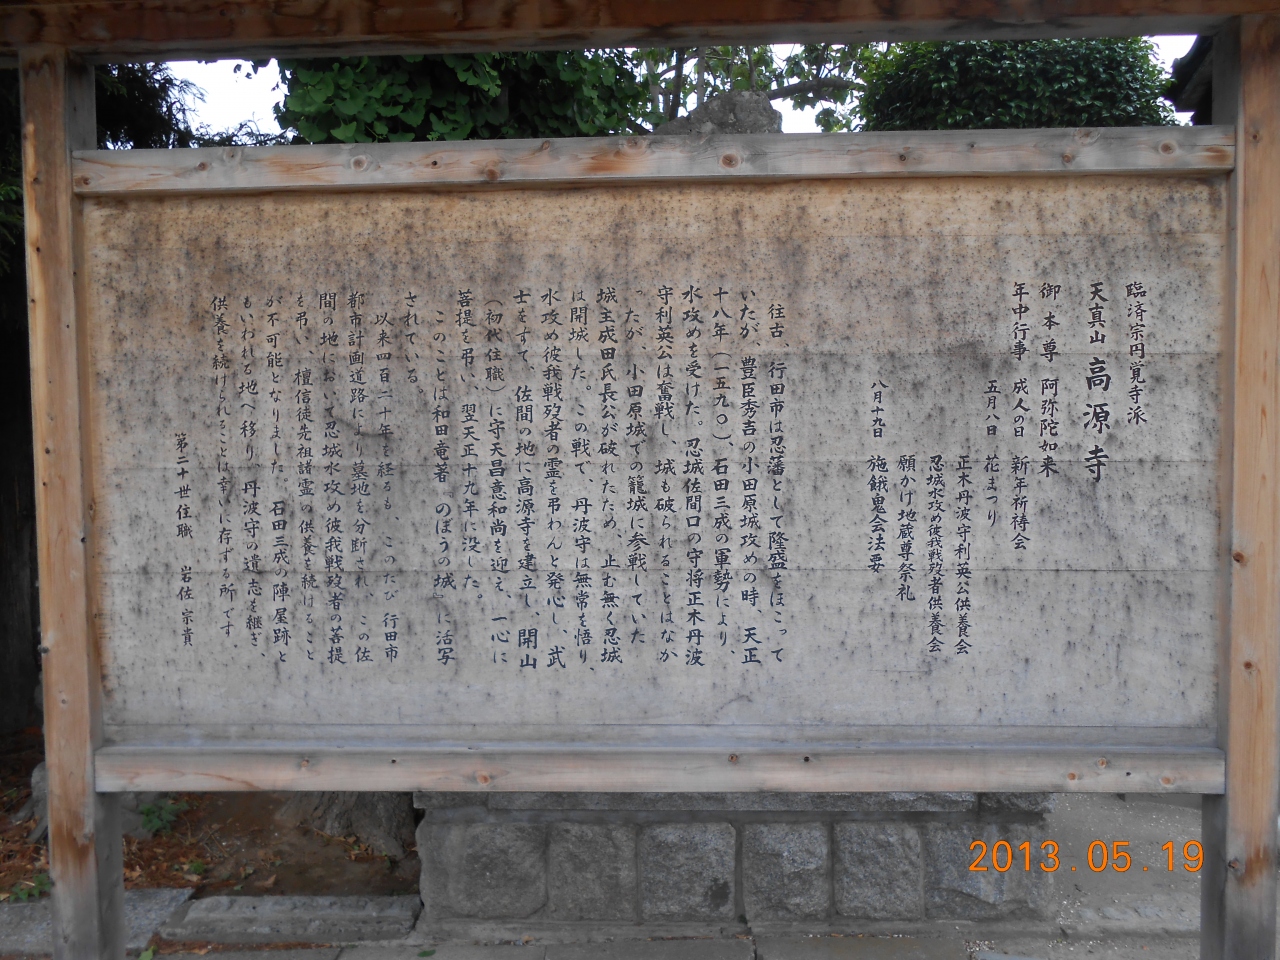 臨済宗円覚寺派
天真山 高源寺
御本尊 阿弥陀如来
年中行事 成人の日 新年祈祷会
五月八日 花まつり
正木丹波守利英公供養会
忍城水攻め彼我戦歿者供養会
願かけ地蔵尊祭礼
八月十九日 施餓鬼会法要
往古、行田市は忍藩として隆盛をほこって
いたが、豊臣秀吉の小田原城攻めの時、天正
十八年（一五九〇）、石田三成の軍勢により、
水攻めを受けた。忍城佐間口の守将正木丹波
守利英公は奮戦し、城も破られることはなか
ったが、小田原城での籠城に参戦していた
城主成田氏長公が破れたため、止む無く忍城
は開城した。この戦で、丹波守は無常を悟り、
水攻め彼我戦歿者の霊を弔わんと発心し、武
士をすて、佐間の地に高源寺を建立し、開山
（初代住職）に守天昌意和尚を迎え、一心に
菩提を弔い、翌天正十九年に没した。
このことは和田竜著『のぼうの城』に活写
されている。
以来四百二十年を経るも、このたび行田市
都市計画道路により墓地を分断され、この佐
間の地において忍城水攻め彼我戦歿者の菩提
を弔い、檀信徒先祖諸霊の供養を続けること
が不可能となりました。石田三成の陣屋跡と
もいわれる地へ移り、丹波守の遺志を継ぎ、
供養を続けられることは幸いに存ずる所です
第二十世住職 岩佐宗貴
2013.05.19